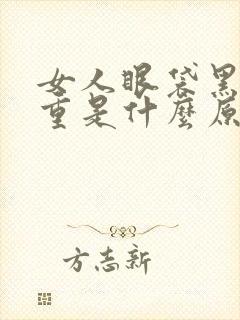 女人眼袋黑
重是什麼原
方志新